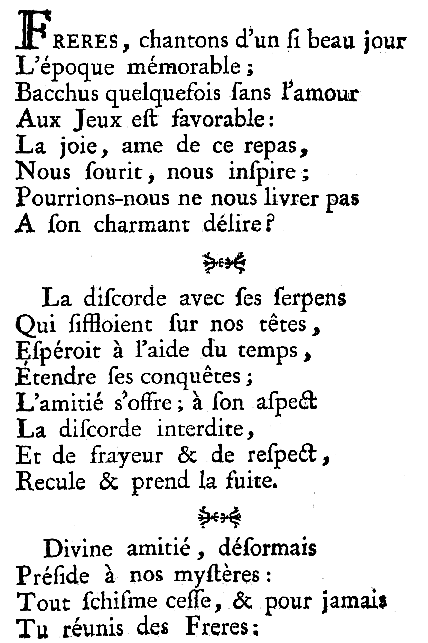 FRERES, chantons d'un ſi beau jour
L'époque mémorable ;
Bacchus quelquefois ſans l'amour
Aux Jeux eſt favorable :
La joie, ame de ce repas,
Nous ſourit, nous inſpire ;
Pourrions-nous ne nous livrer pas
A ſon charmant délire ?
La diſcorde avec ſes ſerpens
Qui ſiffloient ſur nos têtes,
Eſpéroit à l'aide du temps,
Étendre ſes conquêtes ;
L'amitié s'offre ; à ſon aſpect
La diſcorde interdite,
Et de frayeur & de reſpect,
Recule & prend la fuite.
Divine amitié, déſormais
Préſide à nos myſtères :
Tout ſchiſme ceſſe, & pour jamais
Tu réunis des Freres :